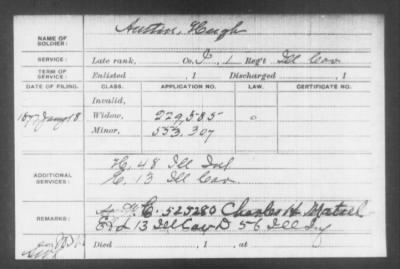 NAME OF SOLDIER: Austin, Hugh
SERVICE: Late rank, Co. I, L Reg't Ill Cav
TERM OF SERVICE: Enlisted , 1 Discharged , 1
DATE OF FILING. CLASS. APPLICATION NO. LAW. CERTIFICATE NO.
Invalid,
1877 Jany 18 Widow, 229,585 0
Minor, 553,307
ADDITIONAL SERVICES: H, 48 Ill Inf
C, 13 Ill Cav
REMARKS: C. 525280 Charles H
L 13 Ill Cav D 56 Ill Inf
Died , 1 , at